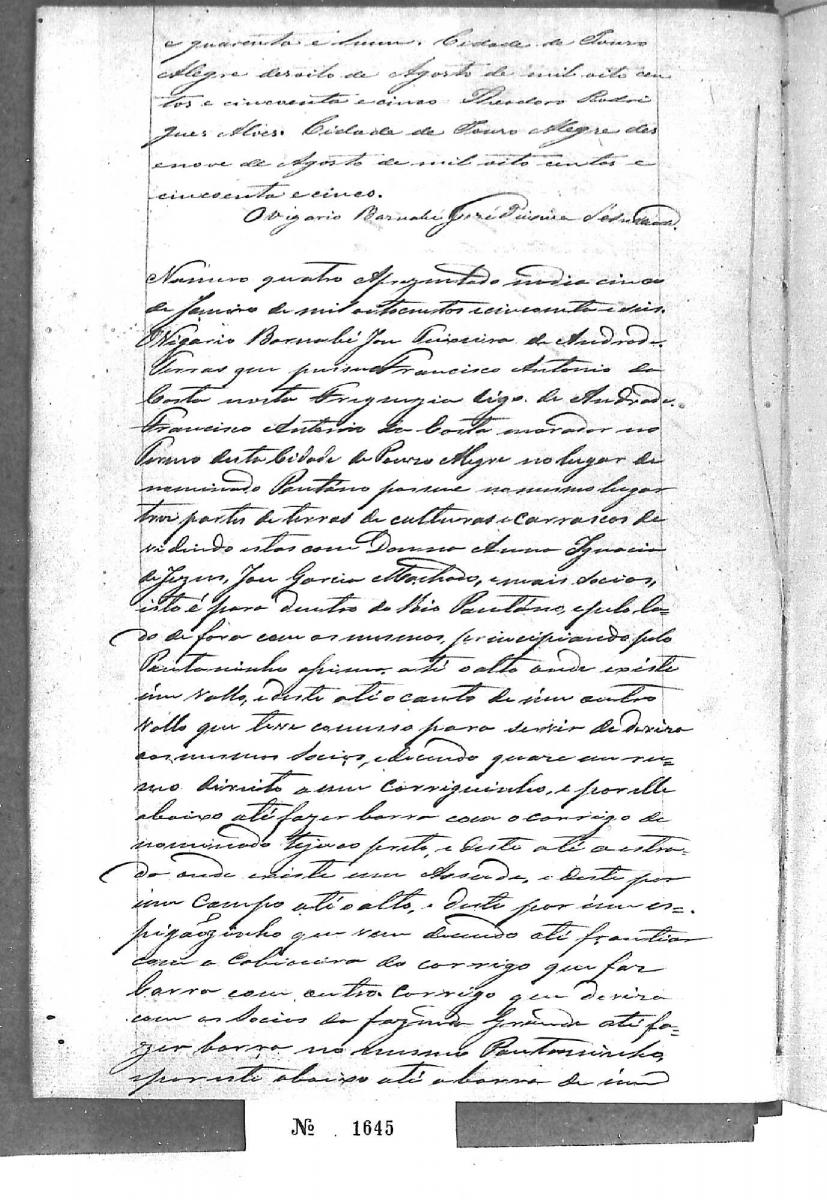 e quarenta e hum. Cidade de Pouro
Alegre desoito de Agosto de mil oito cen
tos e cincoenta e cinco Theodoro Rodri
gues Alves. Cidade de Pouro Alegre des
enove de Agosto de mil oito centos e
cincoenta e cinco.
O Vigario Barnabé José Teixeira d'Andrade.
Número quatro Aprezentado no dia cinco
de Janeiro de mil oitocentos e cincoenta e seis.
O Vigario Barnabé Joze Teixeira de Andrade.
Terras que possue Francisco Antonio da
Costa nesta Freguezia digo. de Andrade.
Francisco Antonio da Costa morador no
Termo desta Cidade de Pouzo Alegre no lugar de
nominado Pantâno possue no mesmo lugar
trez partes de terras de culturas e carrascos de
vidindo estas com Donna Anna Ignacia
de Jezus, Joze Garcia Machado, e mais socios,
isto é para dentro do Rio Pantâno, e pelo la=
do de fora com os mesmos, principiando pelo
Pantaninho assima, até o alto onde existe
um vallo, e deste até o canto de um outro
vallo que teve comesso para servir de deviza
aos mesmos socios, e decendo quaze em ru=
mo direito a um corriguinho, e por elle
abaixo até fazer barra com o corrigo de
nominado tejuco preto, e deste até a estra=
da onde existe um Assude, e deste por
um campo até o alto, e deste por um es=
pigãozinho que vem decendo até frontiar
com a cabiceira do corrigo que faz
barra com outro corrigo que deviza
com os socios da fazenda Grande até fa=
zer barra no mesmo Pantaninho,
e por este abaixo até a barra de um
Nº 1645